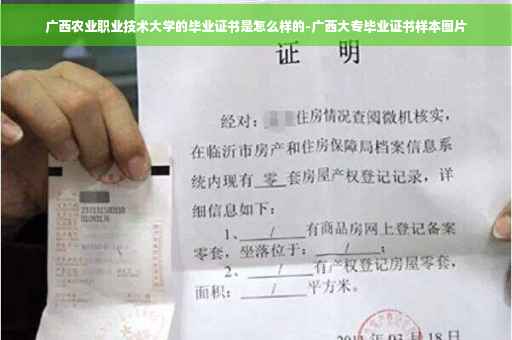 广西农业职业技术大学的毕业证书是怎么样的-广西大专毕业证书样本图片
证 明
经对：住房情况查阅微机核实，
在临沂市房产和住房保障局档案信息系
统内现有 零 套房屋产权登记记录，详
细信息如下：
1、 / 有商品房网上登记备案
零套，坐落位于： / ；
2、 / 有产权登记房屋零套，
面积： / 平方米。
月 18 日